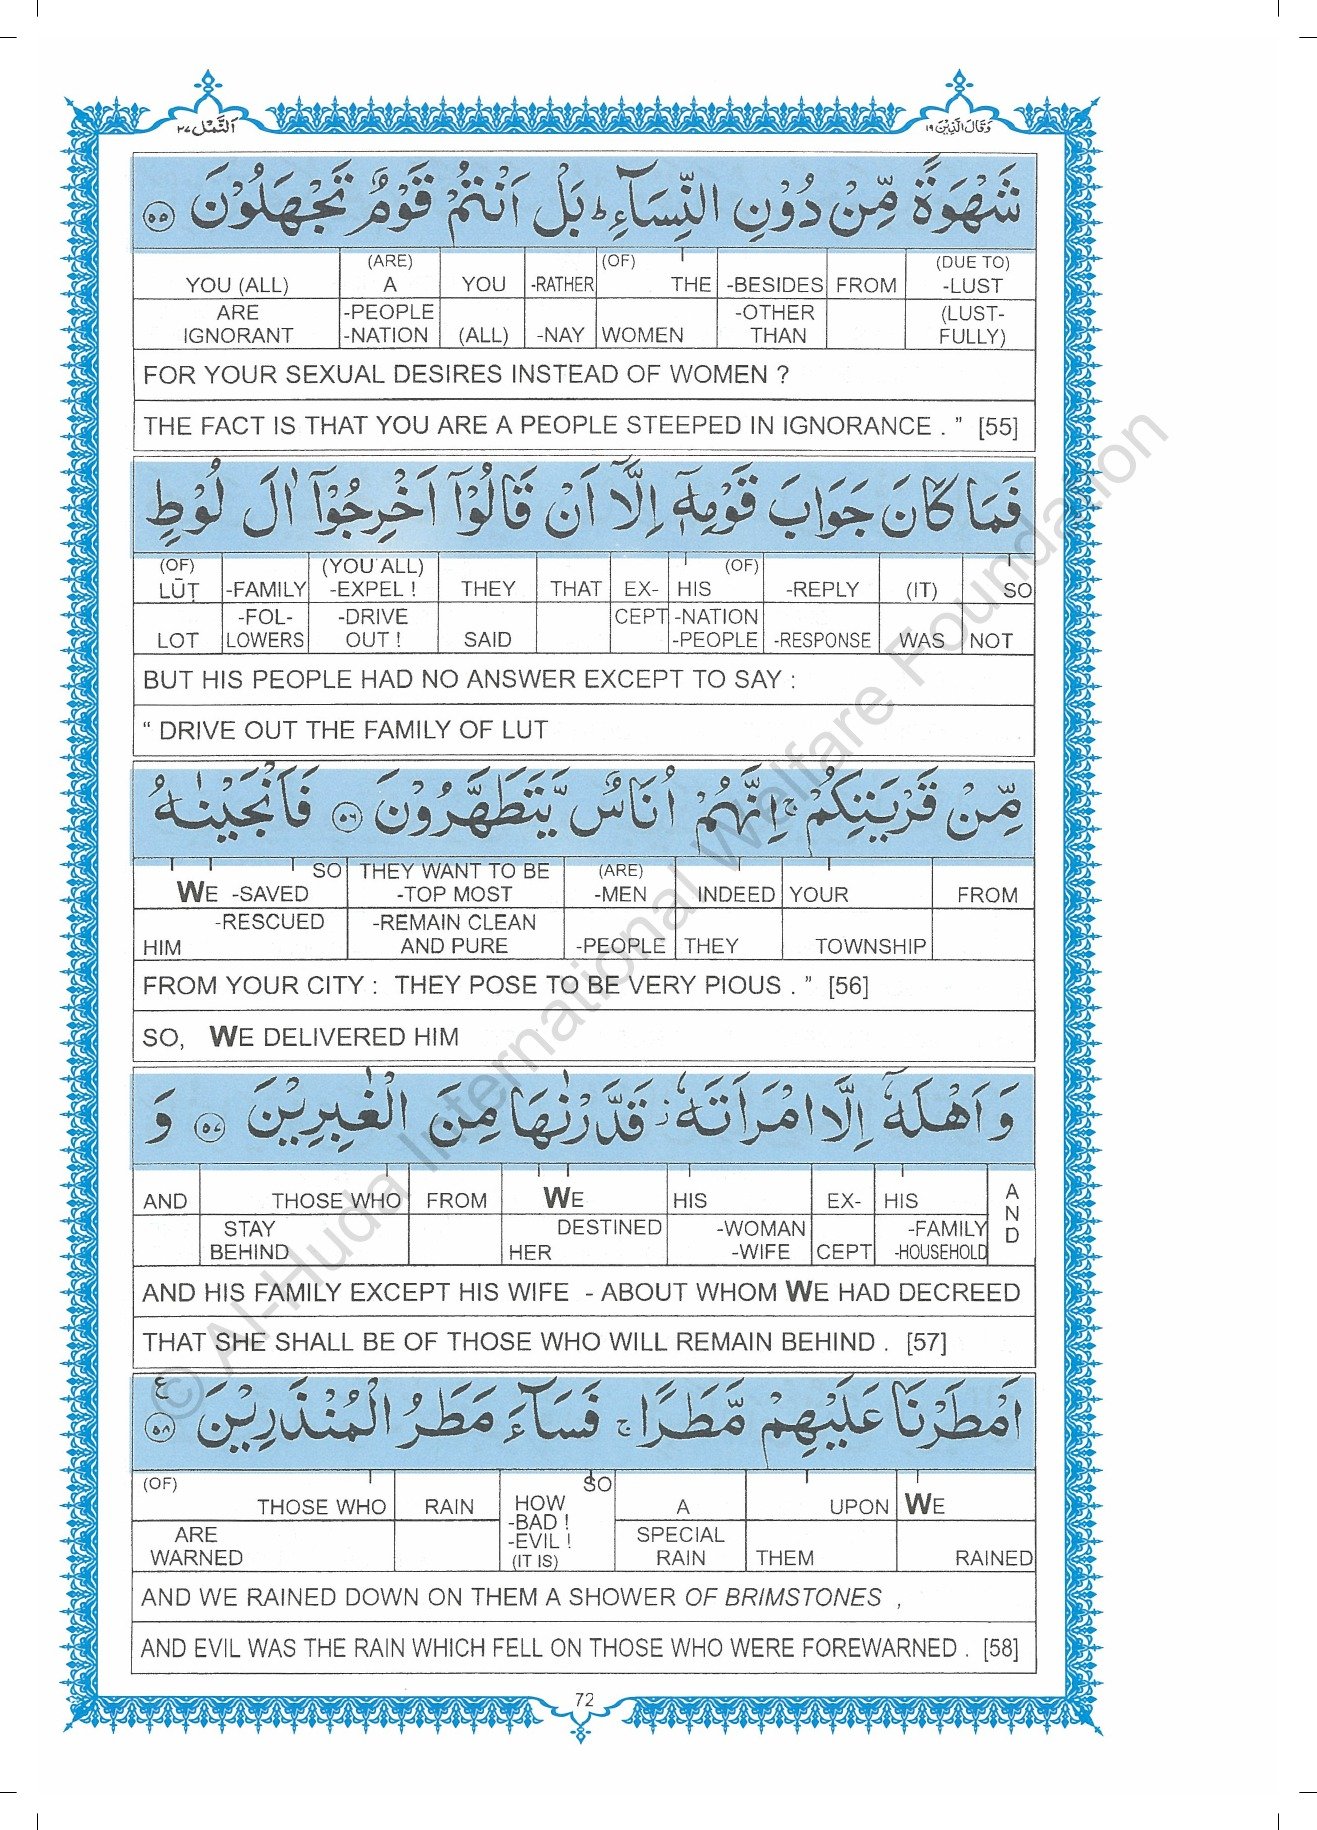 اَلنَّمْل ٢٧
وَقَالَ الَّذِيْنَ ١٩
شَهْوَةً مِّنْ دُوْنِ النِّسَآءِ ؕ بَلْ اَنْتُمْ قَوْمٌ تَجْهَلُوْنَ ٥٥
YOU (ALL) (ARE) A YOU -RATHER (OF) THE -BESIDES FROM (DUE TO) -LUST
ARE IGNORANT -PEOPLE -NATION (ALL) -NAY WOMEN -OTHER THAN (LUST-FULLY)
FOR YOUR SEXUAL DESIRES INSTEAD OF WOMEN ?
THE FACT IS THAT YOU ARE A PEOPLE STEEPED IN IGNORANCE . ” [55]
فَمَا كَانَ جَوَابَ قَوْمِهٖٓ اِلَّآ اَنْ قَالُوْٓا اَخْرِجُوْٓا اٰلَ لُوْطٍ
(OF) LŪṬ -FAMILY (YOU ALL) -EXPEL ! THEY THAT EX- HIS (OF) -REPLY (IT) SO
LOT -FOL-LOWERS -DRIVE OUT ! SAID CEPT -NATION -PEOPLE -RESPONSE WAS NOT
BUT HIS PEOPLE HAD NO ANSWER EXCEPT TO SAY :
“ DRIVE OUT THE FAMILY OF LUT
مِّنْ قَرْيَتِكُمْ ۚ اِنَّهُمْ اُنَاسٌ يَّتَطَهَّرُوْنَ ٥٦ فَاَنْجَيْنٰهُ
SO WE -SAVED THEY WANT TO BE -TOP MOST (ARE) -MEN INDEED YOUR FROM
-RESCUED HIM -REMAIN CLEAN AND PURE -PEOPLE THEY TOWNSHIP
FROM YOUR CITY : THEY POSE TO BE VERY PIOUS . ” [56]
SO, WE DELIVERED HIM
وَاَهْلَهٗٓ اِلَّا امْرَاَتَهٗ ز قَدَّرْنٰهَا مِنَ الْغٰبِرِيْنَ ٥٧ وَ
AND THOSE WHO FROM WE HIS EX- HIS AND
STAY BEHIND DESTINED HER -WOMAN -WIFE CEPT -FAMILY -HOUSEHOLD
AND HIS FAMILY EXCEPT HIS WIFE - ABOUT WHOM WE HAD DECREED
THAT SHE SHALL BE OF THOSE WHO WILL REMAIN BEHIND . [57]
اَمْطَرْنَا عَلَيْهِمْ مَّطَرًا ۚ فَسَآءَ مَطَرُ الْمُنْذَرِيْنَ ٥٨ ع
(OF) THOSE WHO RAIN SO HOW -BAD ! -EVIL ! (IT IS) A UPON WE
ARE WARNED SPECIAL RAIN THEM RAINED
AND WE RAINED DOWN ON THEM A SHOWER OF BRIMSTONES ,
AND EVIL WAS THE RAIN WHICH FELL ON THOSE WHO WERE FOREWARNED . [58]
72
© Al-Huda International Welfare Foundation